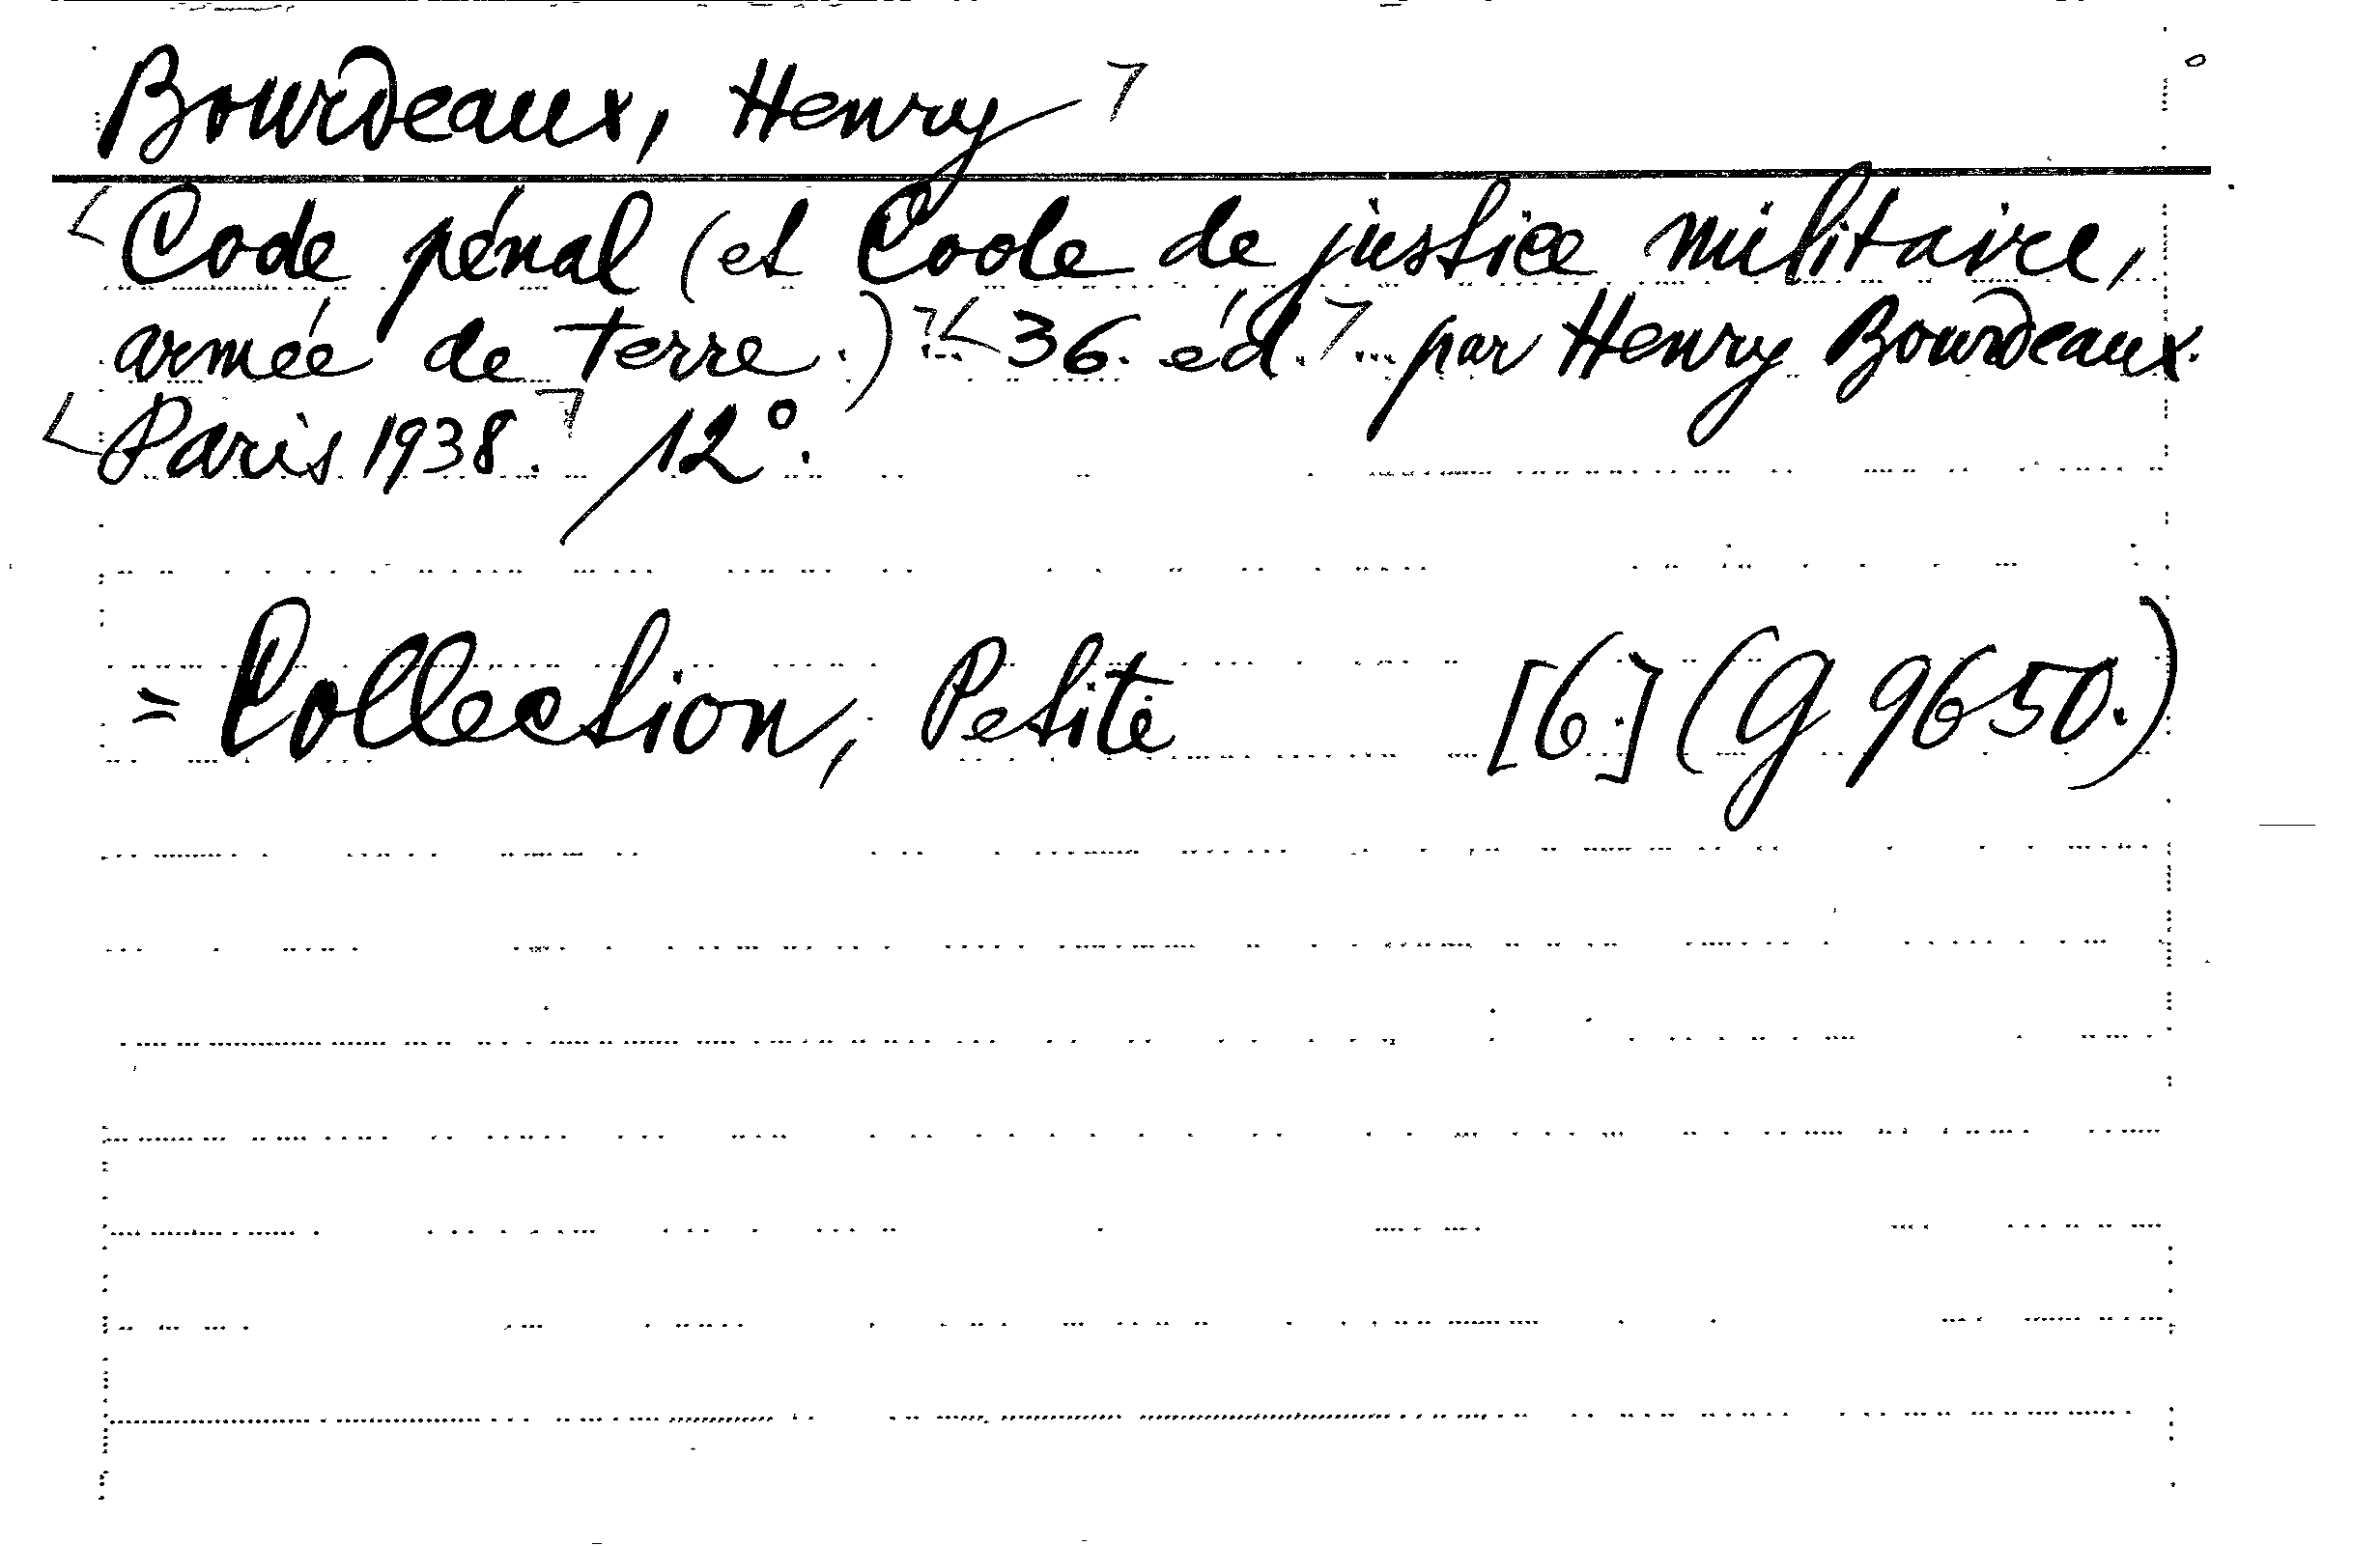 Bourdeaux, Henry
Code pénal (et Code de justice militaire,
armée de terre.) 36. éd. ... par Henry Bourdeaux.
Paris 1938. 12°.
= Collection, Petite [6.] (G 9650.)